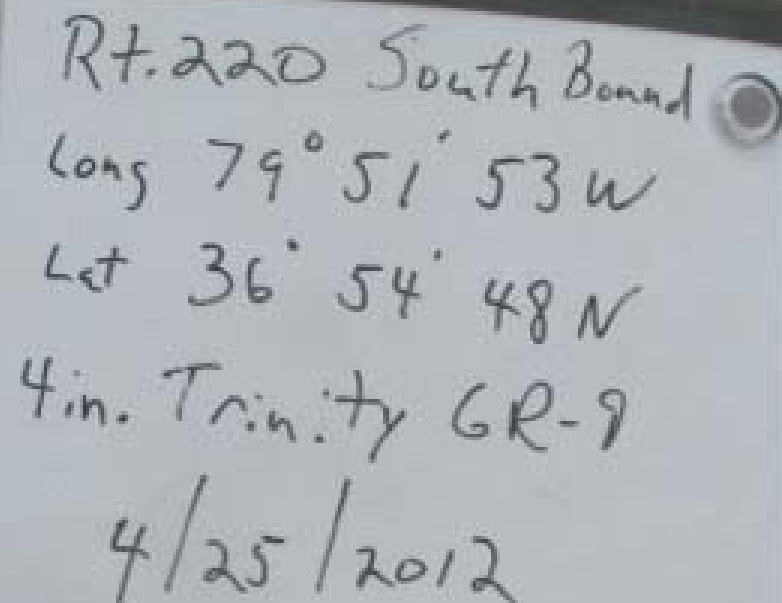 Rt. 220 South Bound
Long 79° 51' 53 W
Lat 36° 54' 48 N
4in. Trinity GR-9
4/25/2012